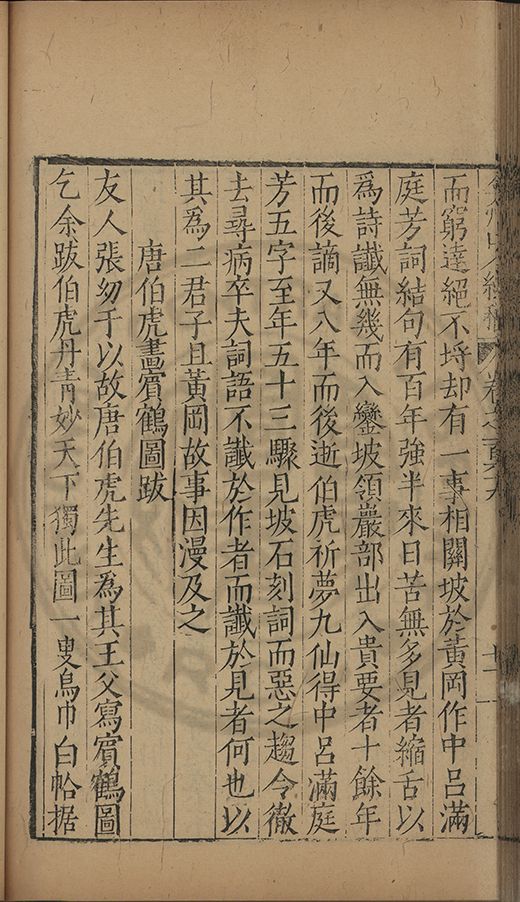 而窮達絕不埒却有一事相關坡於黃岡作中呂滿
庭芳詞結句有百年強半來日苦無多見者縮舌以
爲詩讖無幾而入鑾坡領嚴部出入貴要者十餘年
而後謫又八年而後逝伯虎祈夢九仙得中呂滿庭
芳五字至年五十三驟見坡石刻詞而惡之趨令徹
去尋病卒夫詞語不讖於作者而讖於見者何也以
其爲二君子且黃岡故事因漫及之
唐伯虎畫賓鶴圖跋
友人張幼于以故唐伯虎先生為其王父寫賓鶴圖
乞余跋伯虎丹青妙天下獨此圖一叟烏巾白帢据